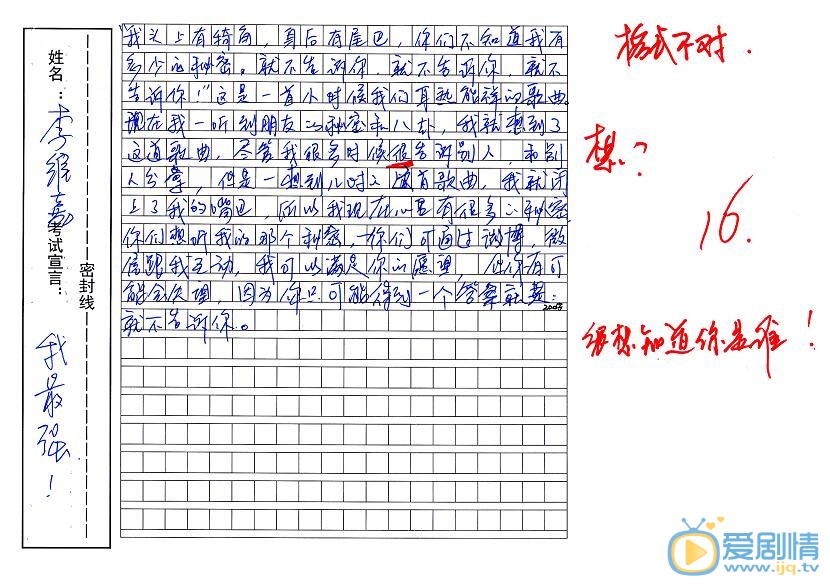 姓名：李维嘉
考试宣言：我最强！
密封线
"我头上有犄角，身后有尾巴，你们不知道我有
多少的秘密。就不告诉你，就不告诉你，就不
告诉你！"这是一首小时候我们耳熟能祥的歌曲。
现在我一听到朋友的秘密和八卦，我就想到了
这道歌曲，尽管我很多时候很告诉别人，和别
人分享，但是一想到儿时这首歌曲，我就闭
上了我的嘴巴，所以我现在心里有很多的秘密
你们想听我的那个秘密，你们可通过微博，微
信跟我互动，我可以满足你的愿望，但你有可
能会失望，因为你只可能得到一个答案就是：
200字
就不告诉你。
格式不对.
想？
16.
很想知道你是谁！
爱剧情
www.ijq.tv